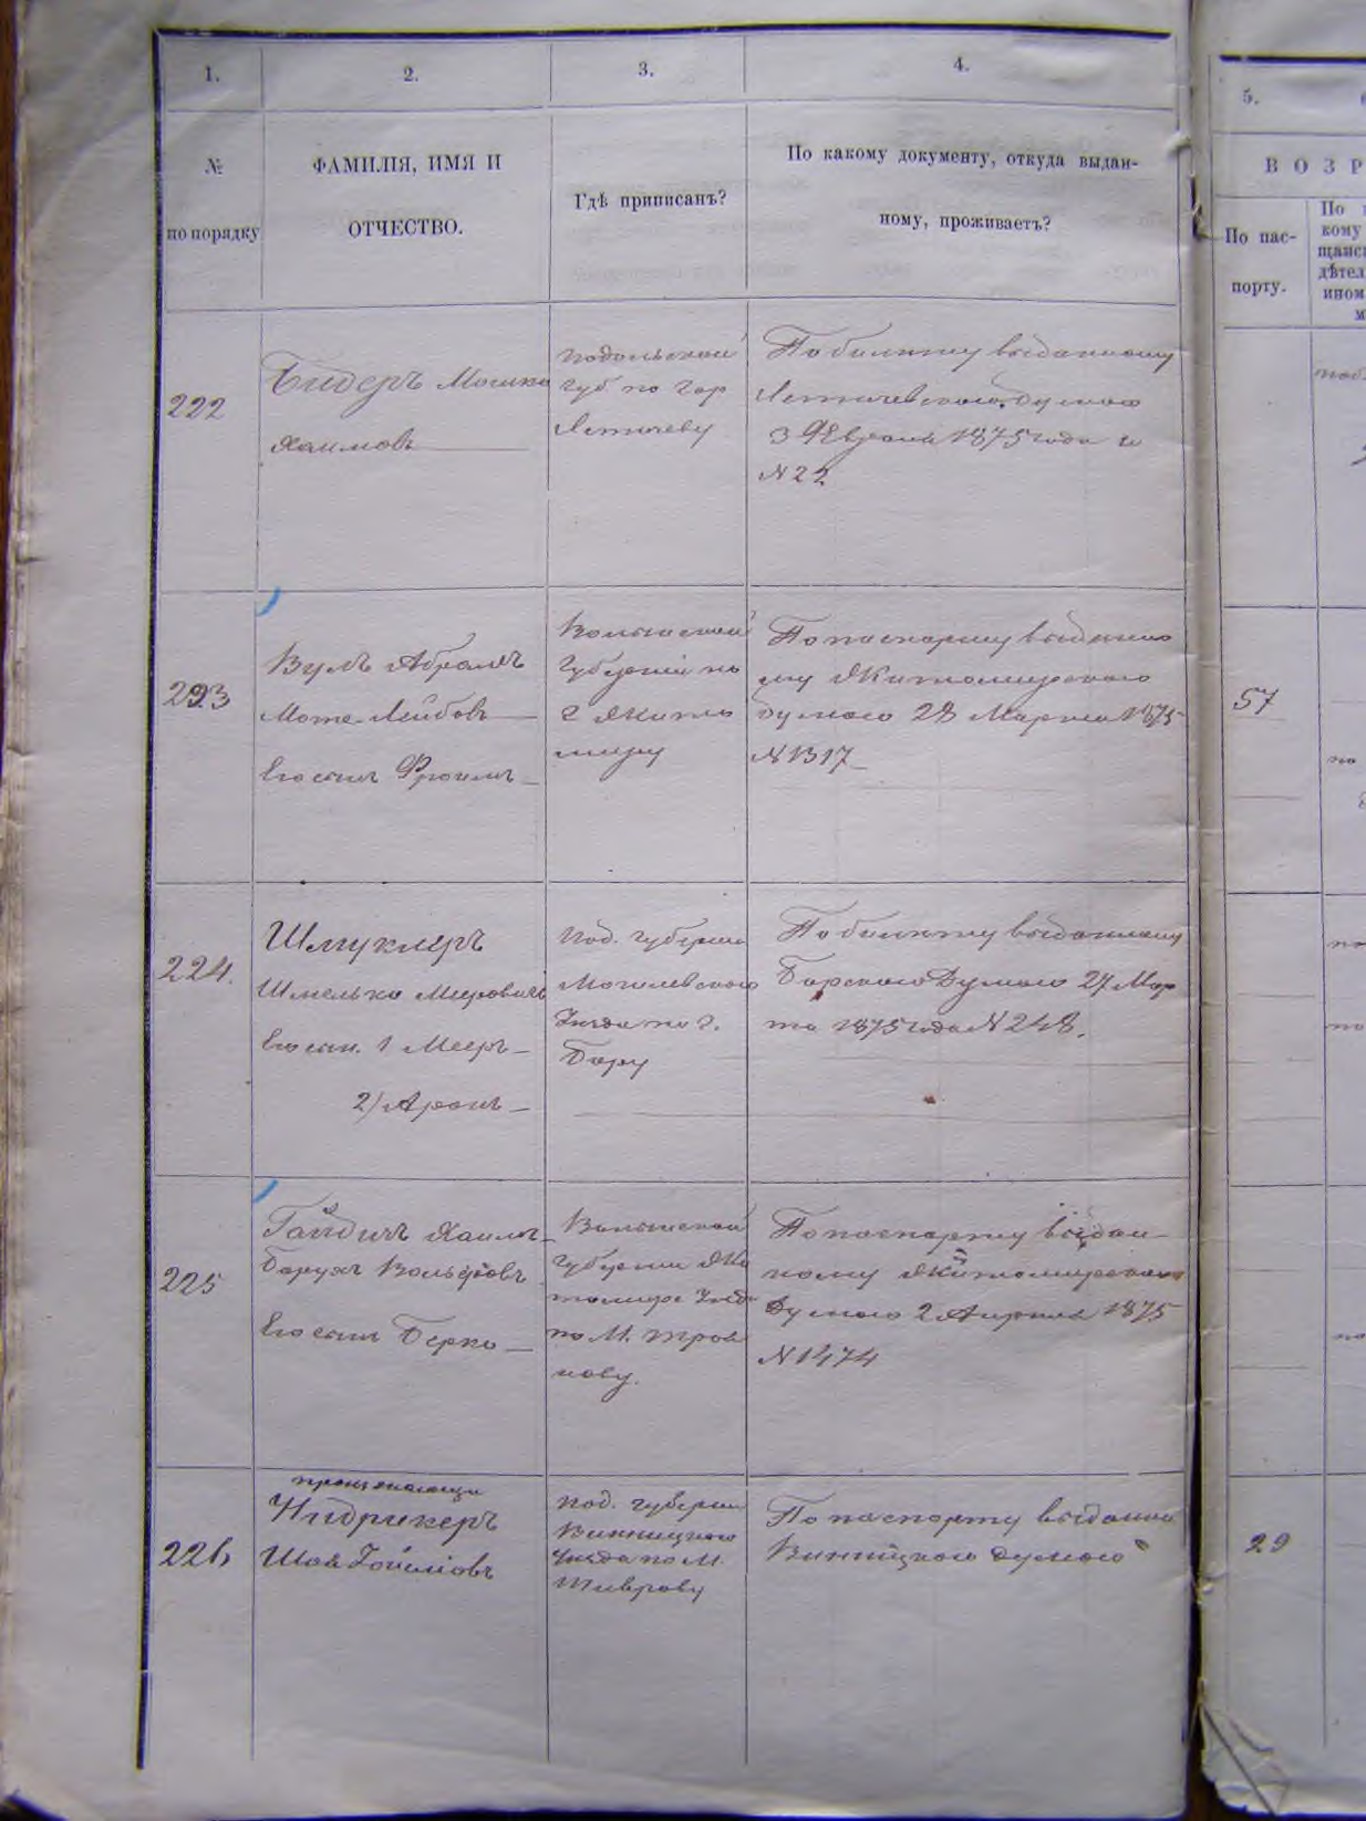 1.
2.
3.
4.
№
по порядку
ФАМИЛІЯ, ИМЯ И
ОТЧЕСТВО.
Гдѣ приписанъ?
По какому документу, откуда выдан-
ному, проживаетъ?
5.
ВОЗР
По пас-
порту.
По
кому
222
Бидеръ Мошко
Хаимовъ
Подольской
Губ по гор
Летичеву
По билету выданному
Летичевскою думою
3 Февраля 1875 года и
N 22
223
Вулъ Абрамъ
Моте-Лейбовъ
Его сынъ Фроимъ
Волынской
Губерніи по
г Жито
миру
По паспорту выданно
му Житомирскою
думою 28 Марта 1875
N 1317
57
224.
Шмуклеръ
Шмелько Меровичъ
Его сын. 1 Мееръ
2) Аронъ
Под. Губерніи
Могилевского
Уезда по г.
Бару
По билету выданному
Барскою Думою 27 Мар
та 1875 года N 248.
225
Гайдичъ Хаимъ
Барухъ Вольфовъ
Его сынъ Берко
Волынской
Губерніи Жи
томире Уезда
по М. Троя
нову.
По паспорту выдан
ному Житомирскою
Думою 2 Апреля 1875
N 1474
226
Нидрикеръ
Шая Іойліовъ
Под. Губерніи
Винницкого
Уезда по М.
Тиврову
По паспорту выданно
Винницкою Думою
29